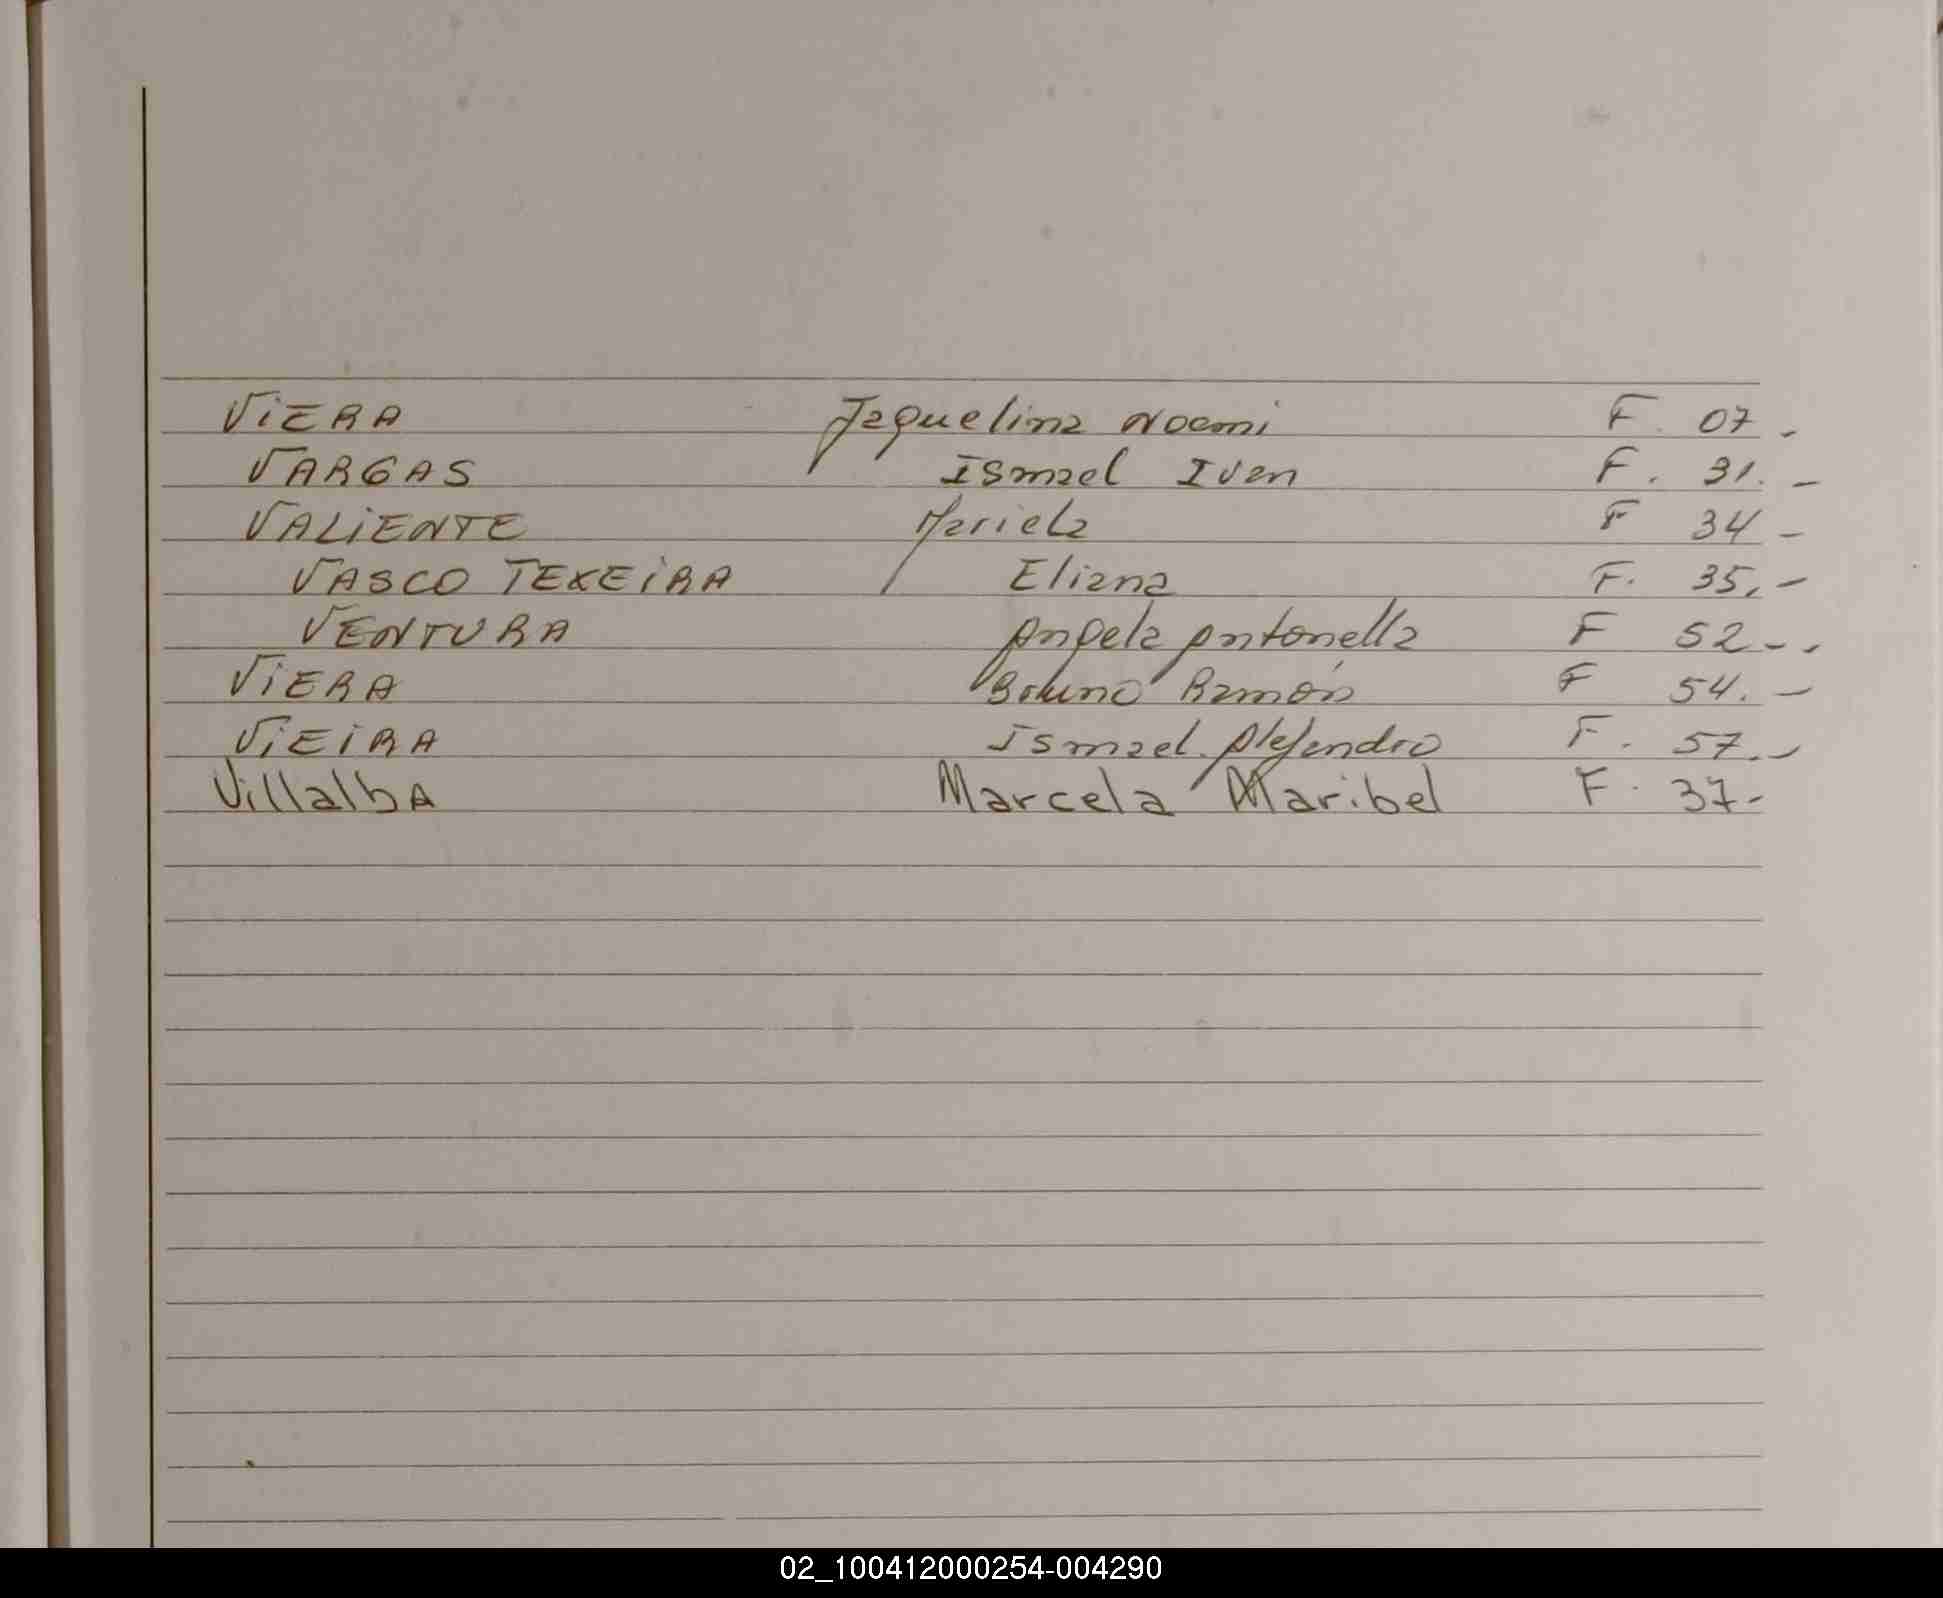 VIERA Jaquelina Noemi F. 07.-
VARGAS Ismael Ivan F. 31.-
VALIENTE Mariela F 34-
VASCO TEXEIRA Eliana F. 35.-
VENTURA Angela Antonella F 52-.
VIERA Bruno Ramón F 54.-
VIEIRA Ismael Alejandro F. 57.-
VillalbA Marcela Maribel F. 37-
02_100412000254-004290